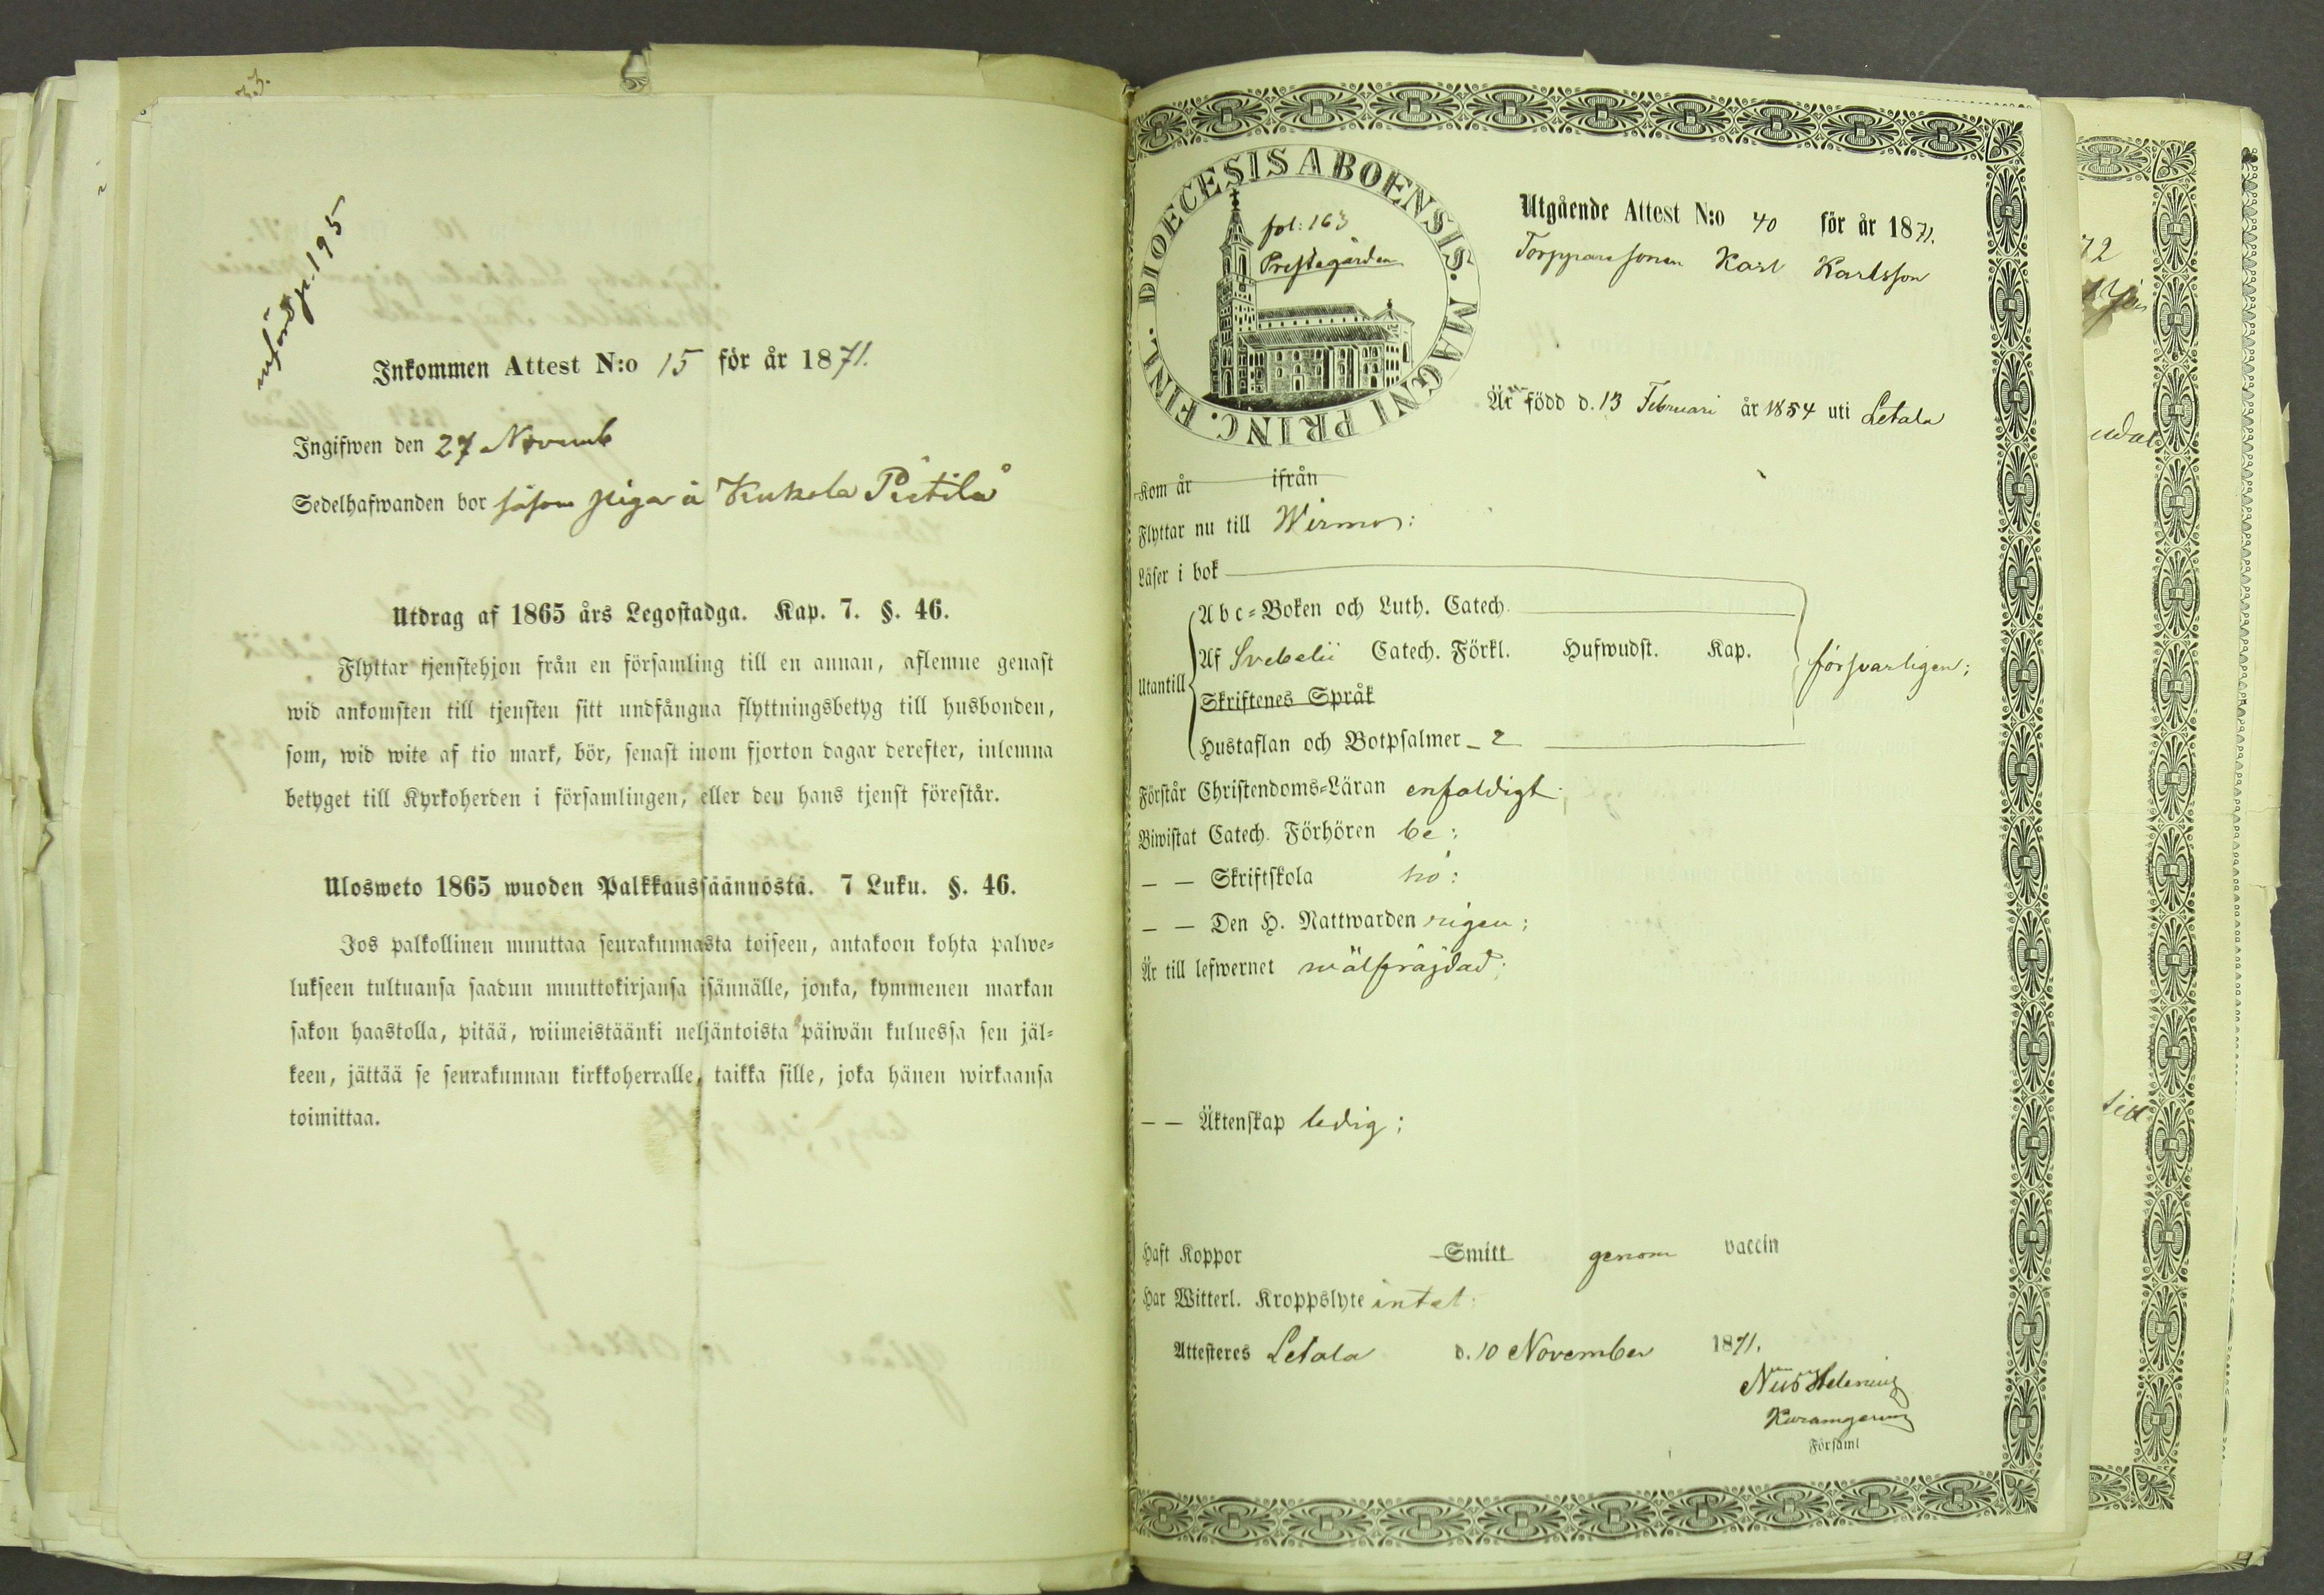 införd p. 195
Inkommen Attest N:o 15 för år 1871.
Ingifwen den 27 Novemb
Sedelhafwanden bor såsom piga å Kukola Pietilä
Utdrag af 1865 års Legostadga. Kap. 7. §. 46.
Flyttar tjenstehjon från en församling till en annan, aflemne genast
wid ankomsten till tjensten sitt undfångna flyttningsbetyg till husbonden,
som, wid wite af tio mark, bör, senast inom fjorton dagar derefter, inlemna
betyget till Kyrkoherden i församlingen, eller den hans tjenst förestår.
Ulosweto 1865 wuoden Palkkaussäännöstä. 7 Luku. §. 46.
Jos palkollinen muuttaa seurakunnasta toiseen, antakoon kohta palwe-
lukseen tultuansa saadun muuttokirjansa isännälle, jonka, kymmenen markan
sakon haastolla, pitää, wiimeistäänki neljäntoista päiwän kuluessa sen jäl-
keen, jättää se seurakunnan kirkkoherralle, taikka sille, joka hänen wirkaansa
toimittaa.
DIOECESIS ABOENSIS. MAGNI PRINC. FINL.
fol: 163
Prestegården
Utgående Attest N:o 40 för år 1871.
Torpparesonen Karl Karlsson
Är född d. 13 Februari år 1854 uti Letala
Kom år ifrån
Flyttar nu till Wirmo:
Läser i bok
Abc-Boken och Luth. Catech.
Utantill Af Svebelii Catech. Förkl. Hufwudst. Kap. försvarligen;
Skriftenes Språk
Hustaflan och Botpsalmer - 2
Förstår Christendoms-Läran enfaldigt;
Biwistat Catech. Förhören be:
— — Skriftskola hö:
— — Den H. Nattwarden nigen;
Är till lefwernet wälfräjdad;
— — Äktenskap ledig;
Haft Koppor Smitt genom vaccin
Har Witterl. Kroppslyte intet.
Attesteres Letala d. 10 November 1871.
Församl